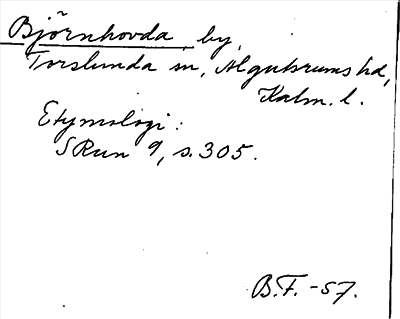 Björnhovda, by,
Torslunda sn, Algutsrums hd,
Kalm. l.
Etymologi:
SRun 9, s. 305.
B.F. -57.